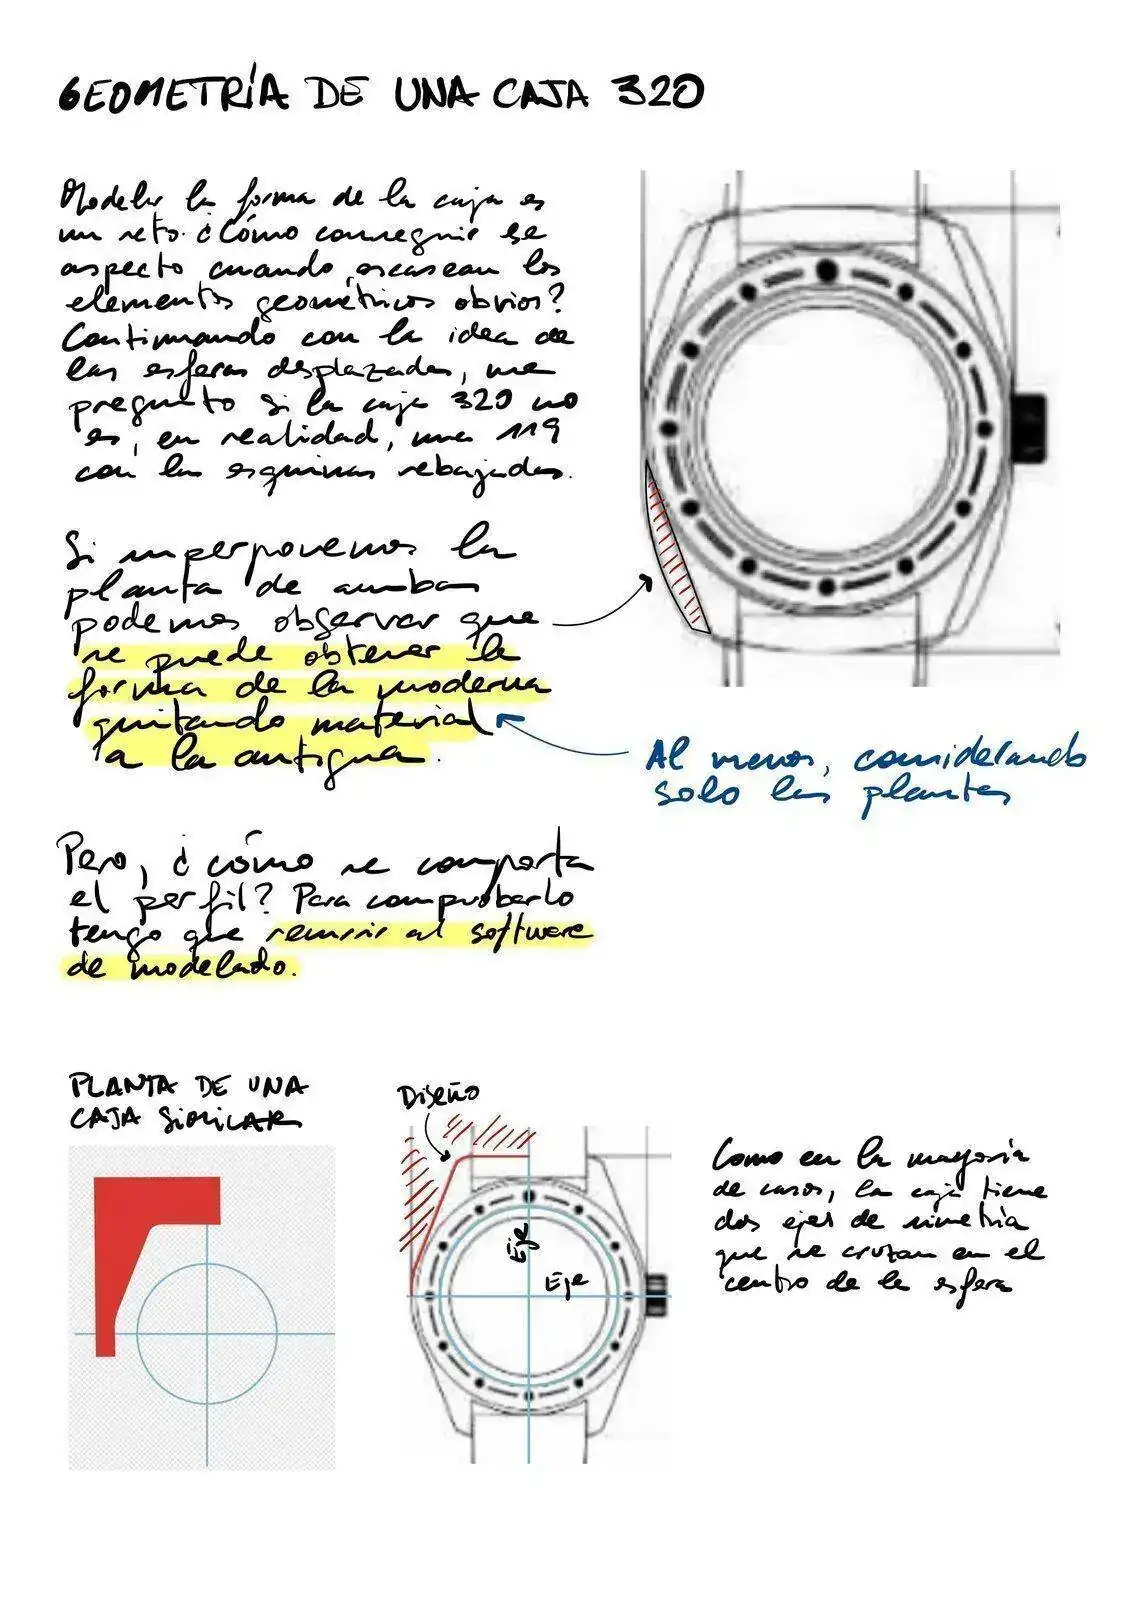 GEOMETRÍA DE UNA CAJA 320
Modelar la forma de la caja es
un reto. ¿Cómo conseguir ese
aspecto cuando escasean los
elementos geométricos obvios?
Continuando con la idea de
las esferas desplazadas, me
pregunto si la caja 320 no
es, en realidad, una 119
con las esquinas rebajadas.
Si superponemos la
planta de ambas
podemos observar que
se puede obtener la
forma de la moderna
quitando material
a la antigua.
Al menos, considerando
solo las plantas
Pero, ¿cómo se comporta
el perfil? Para comprobarlo
tengo que recurrir al software
de modelado.
PLANTA DE UNA
CAJA SIMILAR
Diseño
Eje
Eje
Como en la mayoría
de casos, la caja tiene
dos ejes de simetría
que se cruzan en el
centro de la esfera